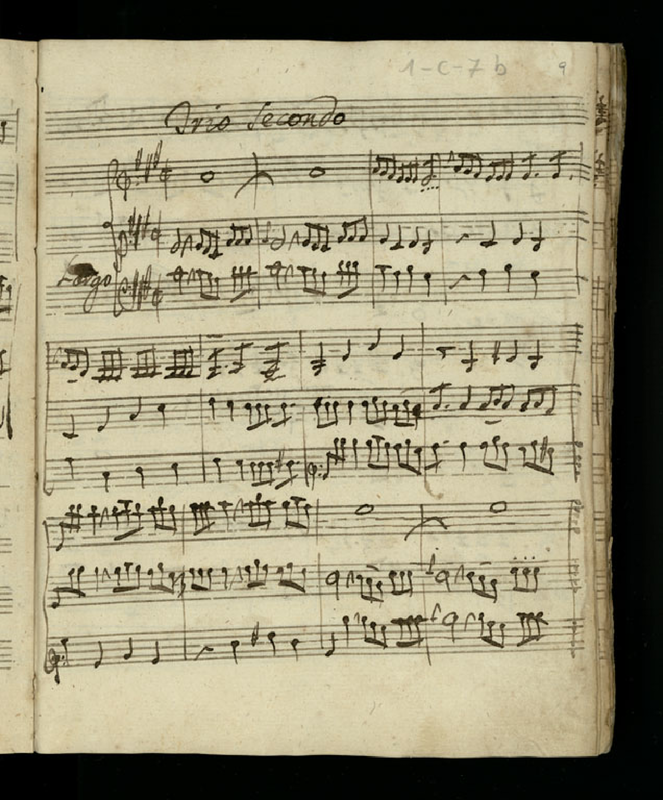 1-C-7 b 9
Trio Secondo
Largo